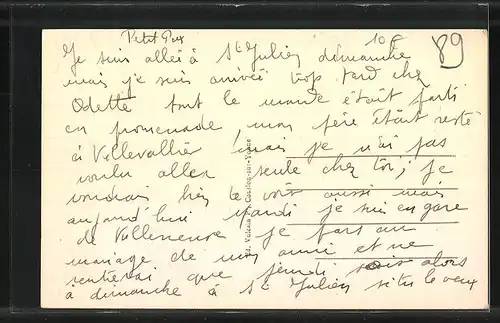 Petit Pax
10 F
89
Je suis allée à St Julien dimanche
mais je suis arrivée trop tard chez
Odette tout le monde était parti
en promenade, mon père était resté
à Villevallier mais je n'ai pas
voulu aller seule chez toi, je
voudrais bien te voir aussi mais
aujourd'hui Mardi je suis en gare
de Villeneuve je pars au
mariage de mon amie et ne
rentrerai que jeudi soir alors
à dimanche à St Julien si tu le veux
Cosselog-sur-Yonne